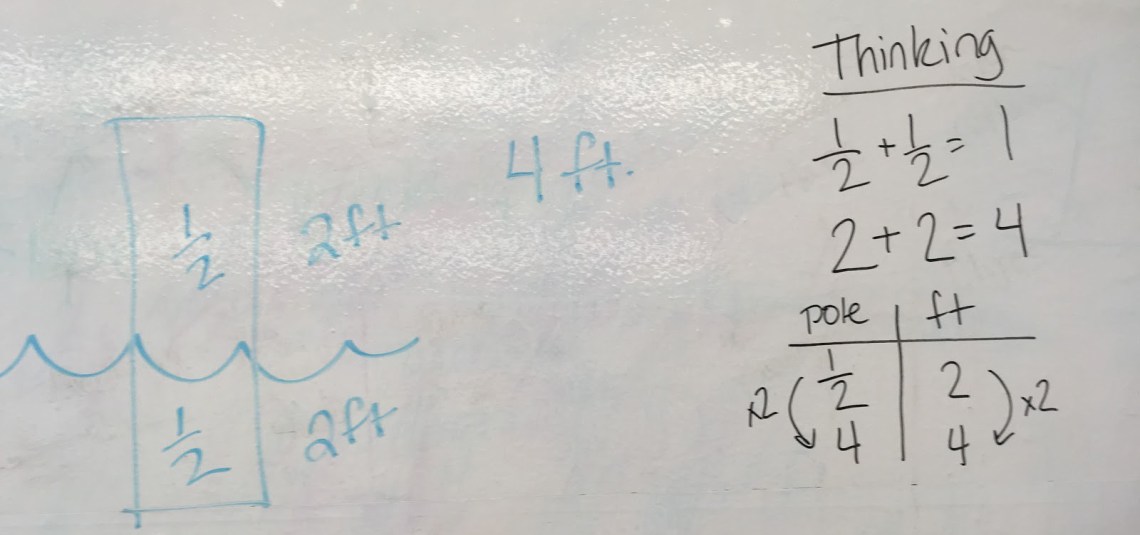 1/2 2ft
4 ft.
1/2 2ft
Thinking
1/2 + 1/2 = 1
2 + 2 = 4
pole ft
x2 1/2 2 x2
4 4